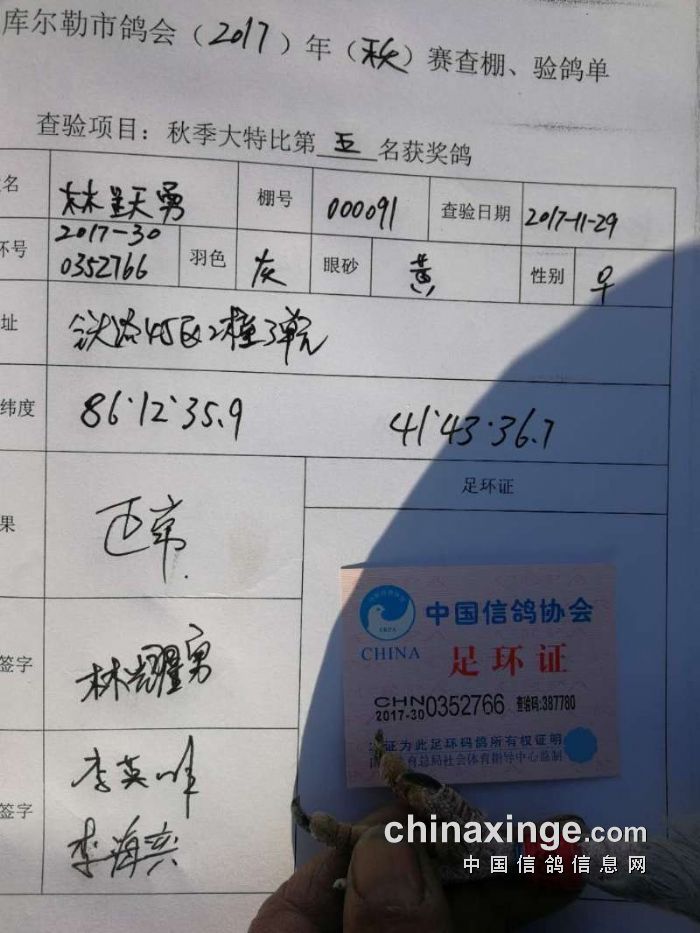 库尔勒市鸽会（2017）年（秋）赛查棚、验鸽单
查验项目：秋季大特比第五名获奖鸽
名 棚号 000091 查验日期 2017-11-29
环号 2017-30
0352766 羽色 灰 眼砂 黄 性别
址 铁路45区2栋3单元
纬度 86·12·35.9 41·43·36.7
果 正常 足环证
签字 林耀勇
签字 李英峰
李海
中国信鸽协会
CHINA
足环证
CHN
2017-30 0352766 查验码:387780
证为此足环码鸽所有权证明
育总局社会体育指导中心监制
chinaxinge.com
中国信鸽信息网